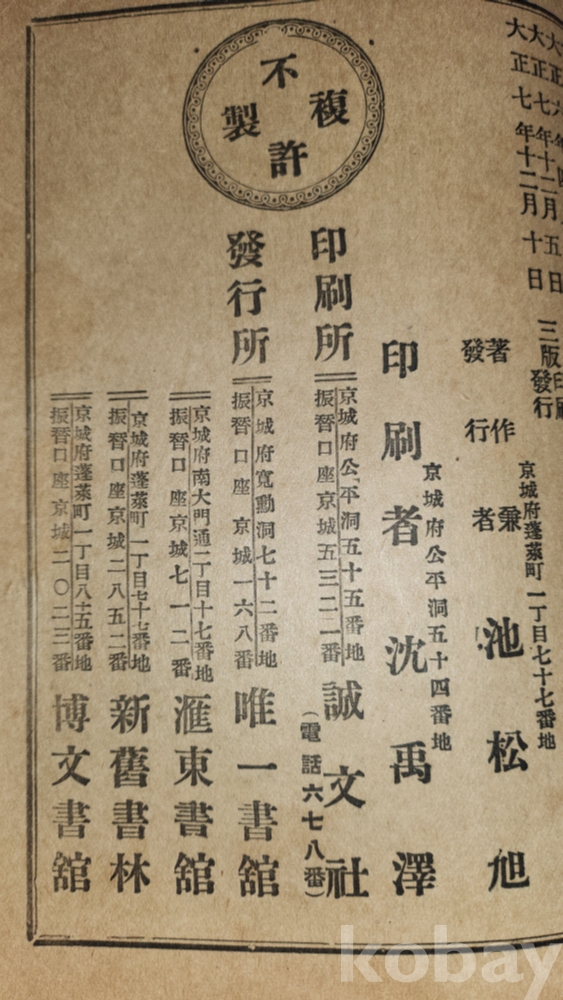 不許複製
大正七年十二月五日
大正七年十二月十日
三版印刷
發行
京城府蓬萊町一丁目七十七番地
著作兼
發行者
池松旭
京城府公平洞五十四番地
印刷者 沈禹澤
印刷所
京城府公平洞五十五番地
振替口座京城五三二一番
誠文社
(電話六七八番)
發行所
京城府寬勳洞七十二番地
振替口座京城一六八番
唯一書舘
京城府南大門通一丁目十七番地
振替口座京城七一二番
滙東書舘
京城府蓬萊町一丁目七十七番地
振替口座京城二八五二番
新舊書林
京城府蓬萊町一丁目八十五番地
振替口座京城二〇二三番
博文書舘
kobay